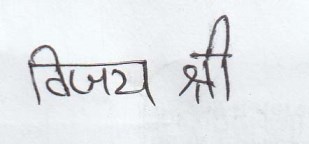 विजय श्री